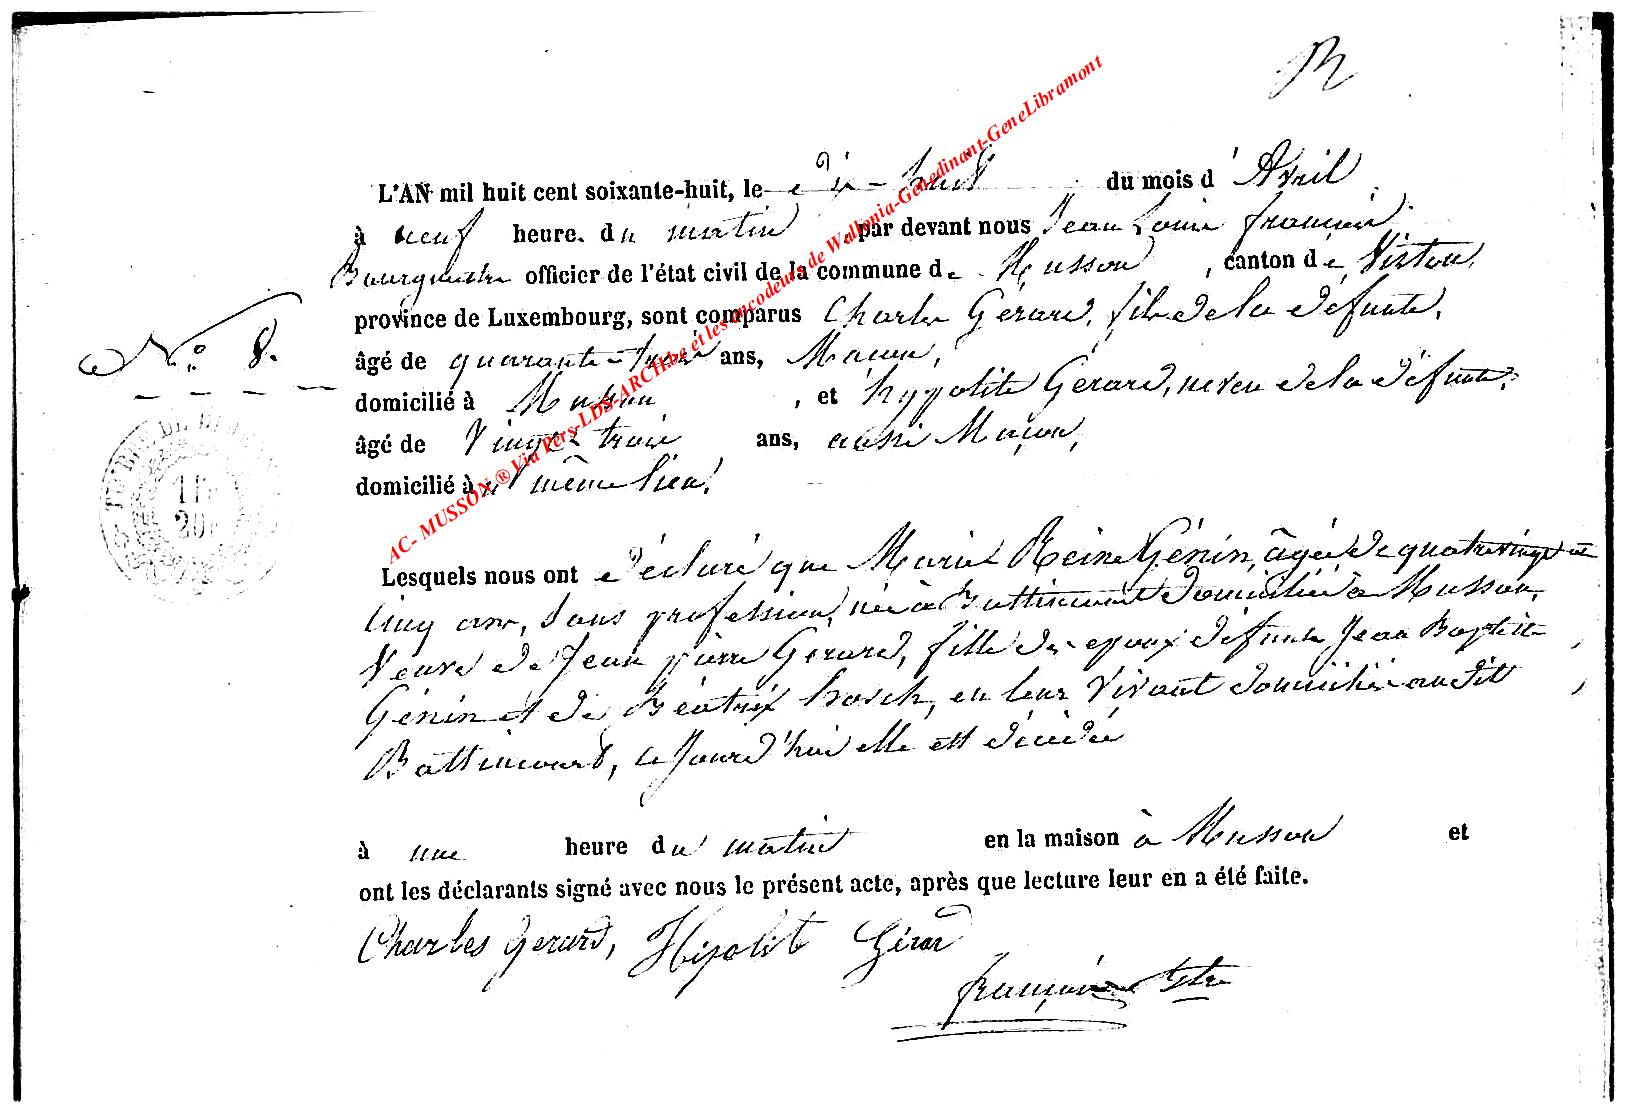 L'AN mil huit cent soixante-huit, le dix-huit du mois d'Avril
à neuf heure. du matin , par devant nous Jean Louis François
Bourgmestre officier de l'état civil de la commune de Musson , canton de Virton,
province de Luxembourg, sont comparus Charles Gérard, fils de la défunte,
N.o 8.
âgé de quarante-trois ans, Maçon,
domicilié à Musson , et hypolite Gérard, neveu de la défunte,
âgé de Vingt-trois ans, aussi Maçon,
domicilié à même lieu,
AC- MUSSON ® Via Pers-LDS-ARCH.be et les encodeurs de Wallonia-Genedinant-GeneLibramont
Lesquels nous ont déclaré que Marie Reine Génin, âgée de quatrevingt
Cinq ans, sans profession, née à Battincourt domiciliée à Musson,
Veuve de Jean pierre Gerard, fille des epoux défunts Jean Baptiste
Génin et de Béatrix horch, en leur vivant domiciliés audit
Battincourt, ce Jourd'hui elle est décédée
à une heure du matin en la maison à Musson et
ont les déclarants signé avec nous le présent acte, après que lecture leur en a été faite.
Charles Gerard, Hipolit Gérar
françois